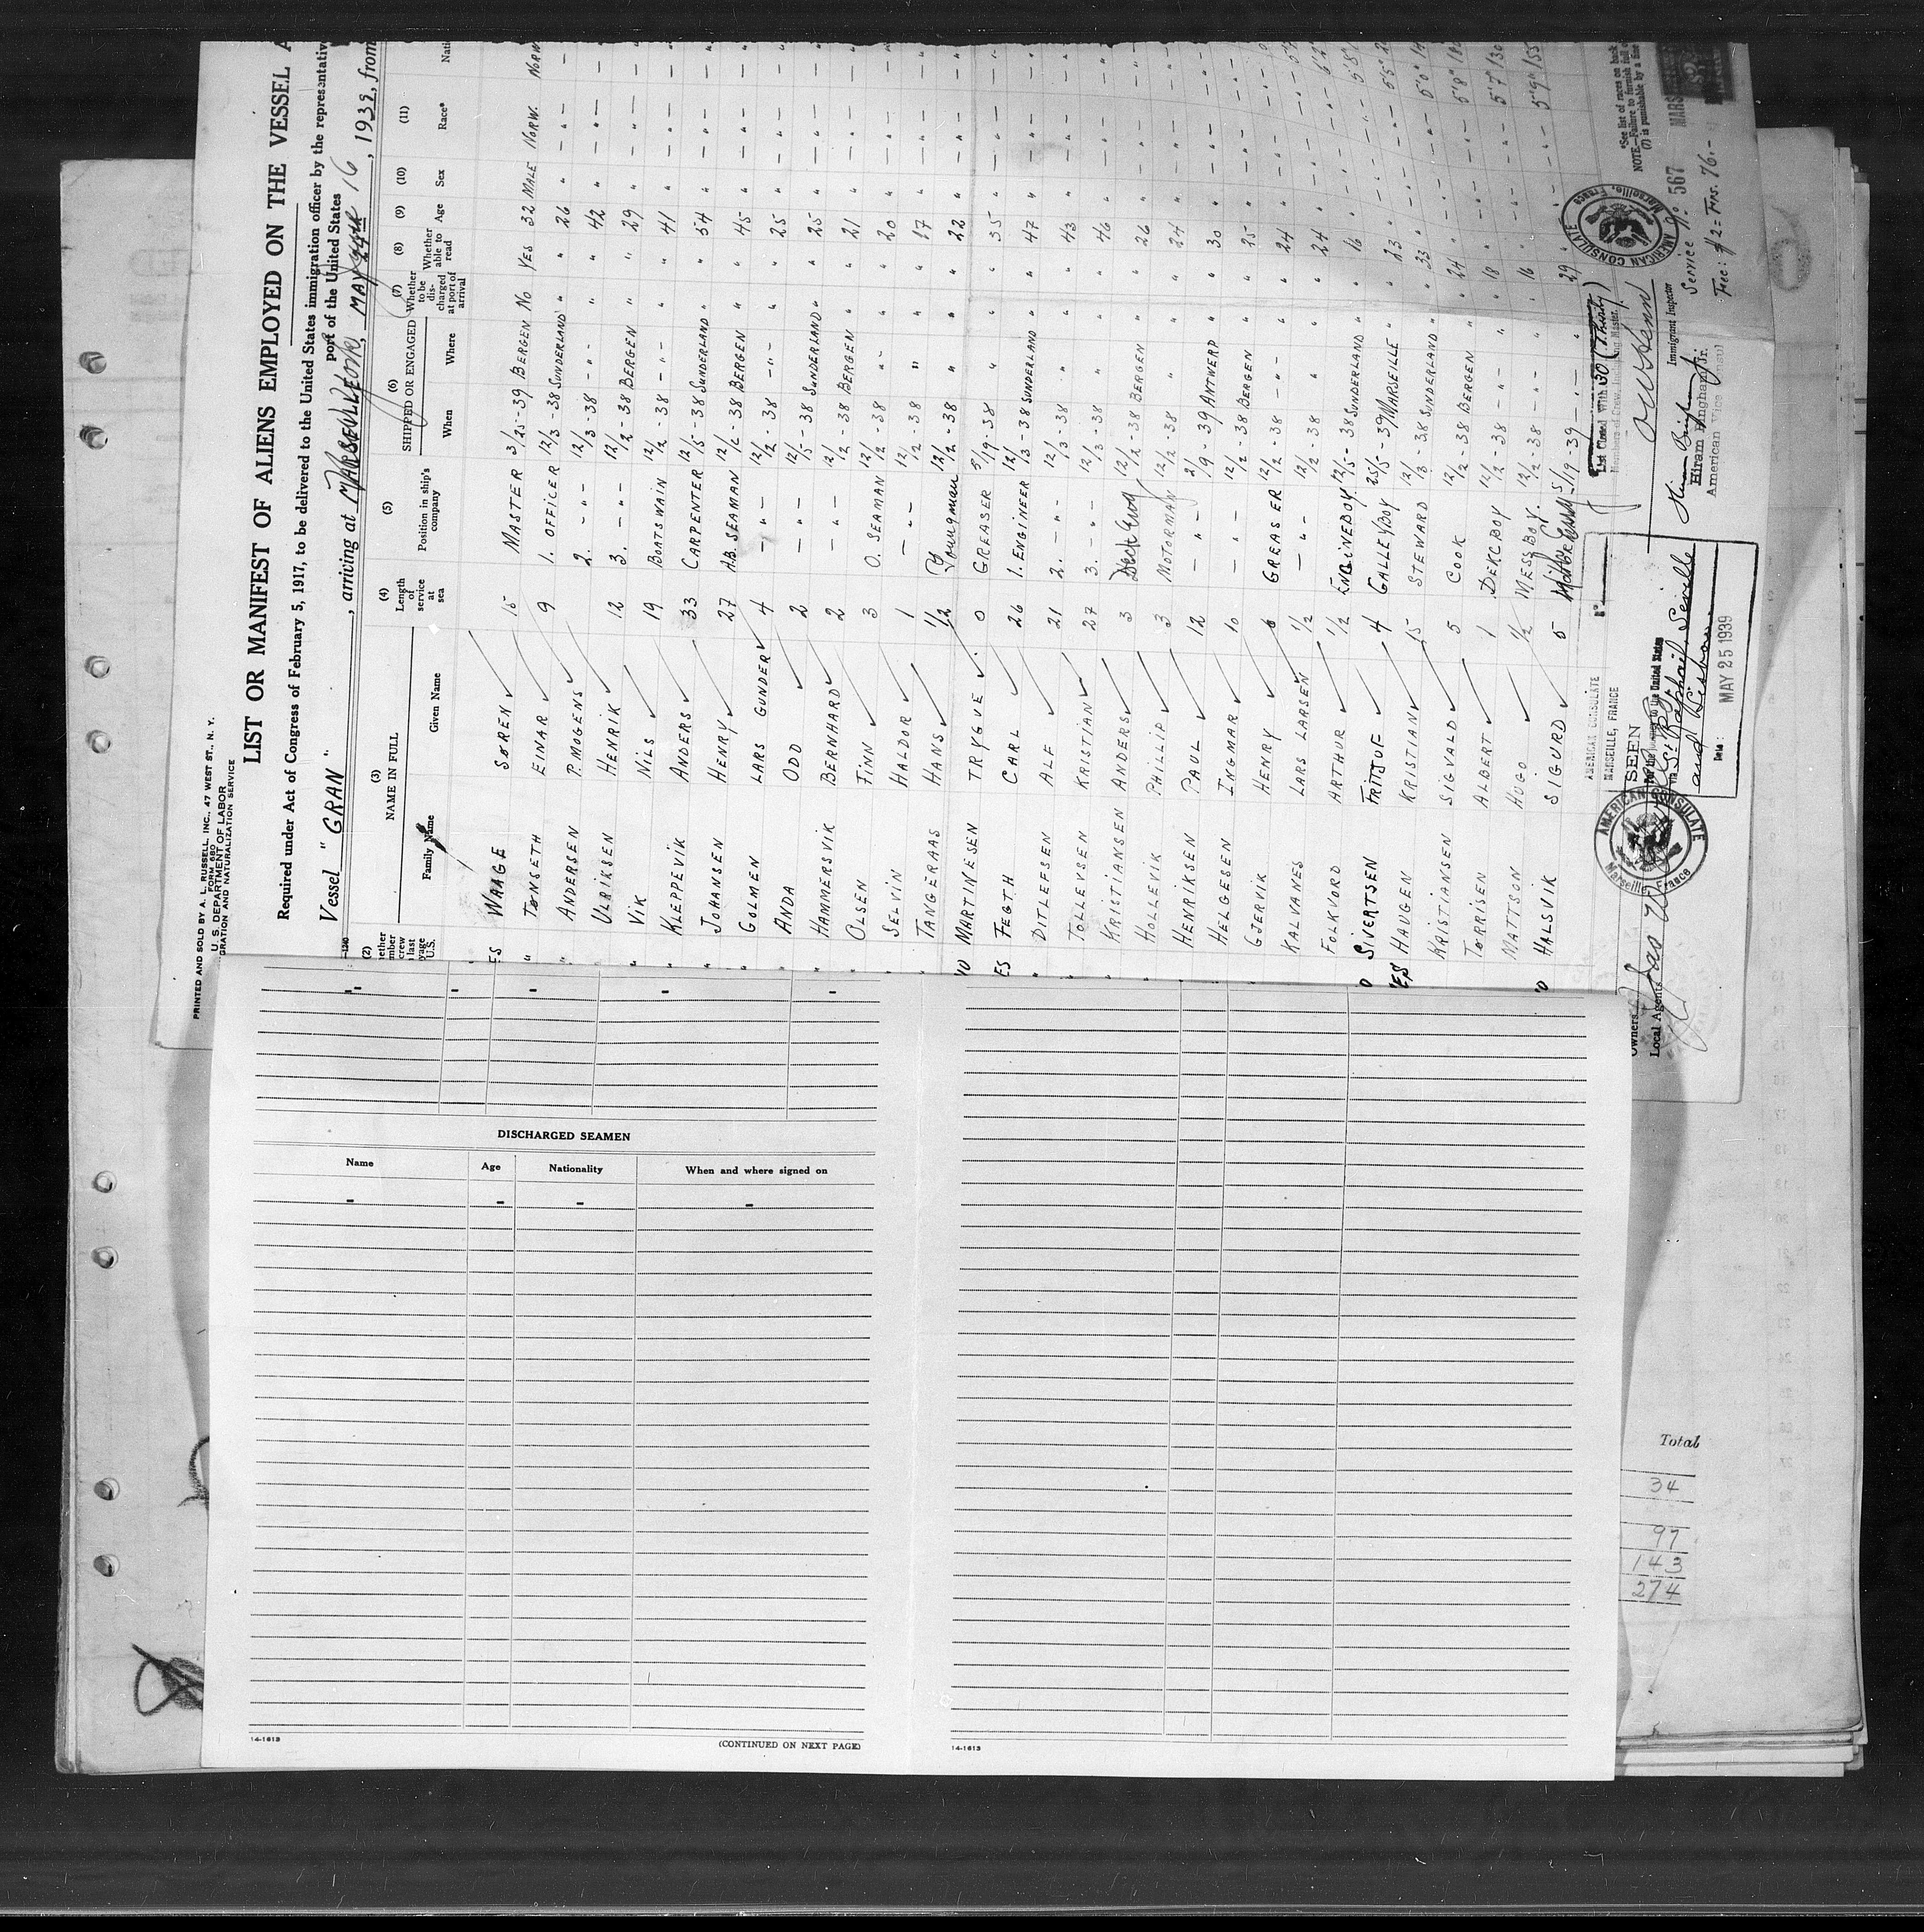 PRINTED AND SOLD BY A. L. RUSSELL, INC., 47 WEST ST., N. Y.
FORM 680
U. S. DEPARTMENT OF LABOR
GRATION AND NATURALIZATION SERVICE
LIST OR MANIFEST OF ALIENS EMPLOYED ON THE VESSEL A
Required under Act of Congress of February 5, 1917, to be delivered to the United States immigration officer by the representative
port of the United States
Vessel "GRAN", arriving at 1939, from
(2) (3) (4) (5) (6) (7) (8) (9) (10) (11)
NAME IN FULL Length of service at sea Position in ship's company SHIPPED OR ENGAGED Whether to be discharged at port of arrival Whether able to read Age Sex Race*
Family Name Given Name When Where
ES WAAGE SØREN 15 MASTER 3/25-39 BERGEN NO YES 32 MALE NORW. NORW
" TØNSETH EINAR 9 1. OFFICER 12/3-38 SUNDERLAND " " 26 " - " -
" ANDERSEN P. MOGENS 2. - " - 12/3-38 - " - " " 42 " - " -
ULRIKSEN HENRIK 12 3. - " - 12/2-38 BERGEN " " 29 " - " -
VIK NILS 19 BOATSWAIN 12/2-38 - " - " " 41 " - " -
" KLEPPEVIK ANDERS 33 CARPENTER 12/5-38 SUNDERLAND " " 54 " - " -
" JOHANSEN HENRY 27 A.B. SEAMAN 12/2-38 BERGEN " " 45 " - " -
" GOLMEN LARS GUNDER 4 - " - 12/2-38 - " - " " 25 " - " -
" ANDA ODD 2 - " - 12/5-38 SUNDERLAND " " 25 " - " -
" HAMMERSVIK BERNHARD 2 - " - 12/2-38 BERGEN " " 21 " - " -
" OLSEN FINN 3 O. SEAMAN 12/2-38 " - " " 20 " - " -
SELVIN HALDOR 1 - " - 12/2-38 " " " 17 " - " -
" TANGERAAS HANS 1/2 Youngman 12/2-38 " " " 22 " - " -
NO MARTINESEN TRYGVE 0 GREASER 5/19-38 " " " 35 " - " -
ES FEGTH CARL 26 1. ENGINEER 12/3-38 SUNDERLAND " " 47 " - " -
" DITLEFSEN ALF 21 2. - " - 12/3-38 " " " 43 " - " -
" TOLLEVSEN KRISTIAN 27 3. - " - 12/3-38 " " " 46 - " -
" KRISTIANSEN ANDERS 3 12/2-38 BERGEN " " 26 " - " -
" HOLLEVIK PHILLIP 3 MOTORMAN 12/2-38 " " " 24 " - " -
HENRIKSEN PAUL 12 - " - 2/9-39 ANTWERP " " 30 " - " -
HELGESEN INGMAR 10 - " - 12/2-38 BERGEN " " 25 " - " -
GJERVIK HENRY 6 GREASER 12/2-38 - " - " " 24 " - " -
KALVANES LARS LARSEN 1/2 - " - 12/2-38 " " " 24 " - " -
FOLKVORD ARTHUR 1/2 ENGINEBOY 12/5-38 SUNDERLAND " " 16 " - " - 5'8"
SIVERTSEN FRITJOF 4 GALLEYBOY 25/5-39 MARSEILLE " " 23 " - " - 5'5"
YES HAUGEN KRISTIAN 15 STEWARD 12/3-38 SUNDERLAND " " 33 " - " - 5'0"
KRISTIANSEN SIGVALD 5 COOK 12/2-38 BERGEN " " 24 " - " - 5'8"
TØRRISEN ALBERT 1 DEKCBOY 12/2-38 - " - " " 18 " - " - 5'7" 130
MATTSON HUGO 1/2 MESSBOY 12/2-38 - " - " " 16 " - " - 5'9" 155
HALSVIK SIGURD 5 5/19-39 - " - " " 29
List Closed With 30 (Thirty)
Members of Crew, Including Master.
AMERICAN CONSULATE
MARSEILLE, FRANCE
SEEN
For the journey to the United States
via St. Raphaël, Seville
and Lisbon
Date: MAY 25 1939
AMERICAN CONSULATE
Marseille, France
Owners
Local Agents
Immigrant Inspector
Hiram Bingham Jr.
Hiram Bingham, Jr.
American Vice Consul
AMERICAN CONSULATE
Marseille, France
Service No. 567
Fee: $2= Frs. 76.-
*See list of races on back
NOTE.—Failure to furnish full
(7) is punishable by a fine
DISCHARGED SEAMEN
Name Age Nationality When and where signed on
- - - -
14-1613 (CONTINUED ON NEXT PAGE)
14-1613
Total
34
97
143
274